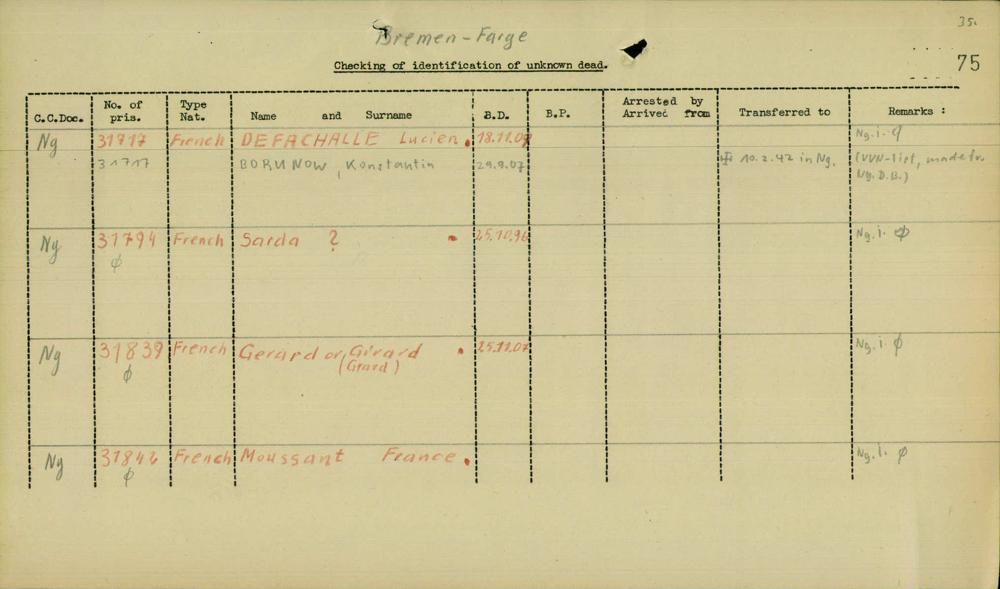 35.
Bremen-Farge
75
Checking of identification of unknown dead.
C.C.Doc. No. of pris. Type Nat. Name and Surname B.D. B.P. Arrested by Arrived from Transferred to Remarks :
Ng 31717 French DEFACHALLE Lucien. 18.11.09 Ng.i.
31717 BORUNOW, Konstantin 29.9.07 10.2.42 in Ng. (VVN-list, made for
Ng. D.B.)
Ng 31794 French Sarda ? 25.10.96 Ng.i. ф
ф
Ng 31839 French Gerard or Girard 25.11.07 Ng.i. ф
ф (Girard)
Ng 31842 French Moussant France. Ng.i. ф
ф